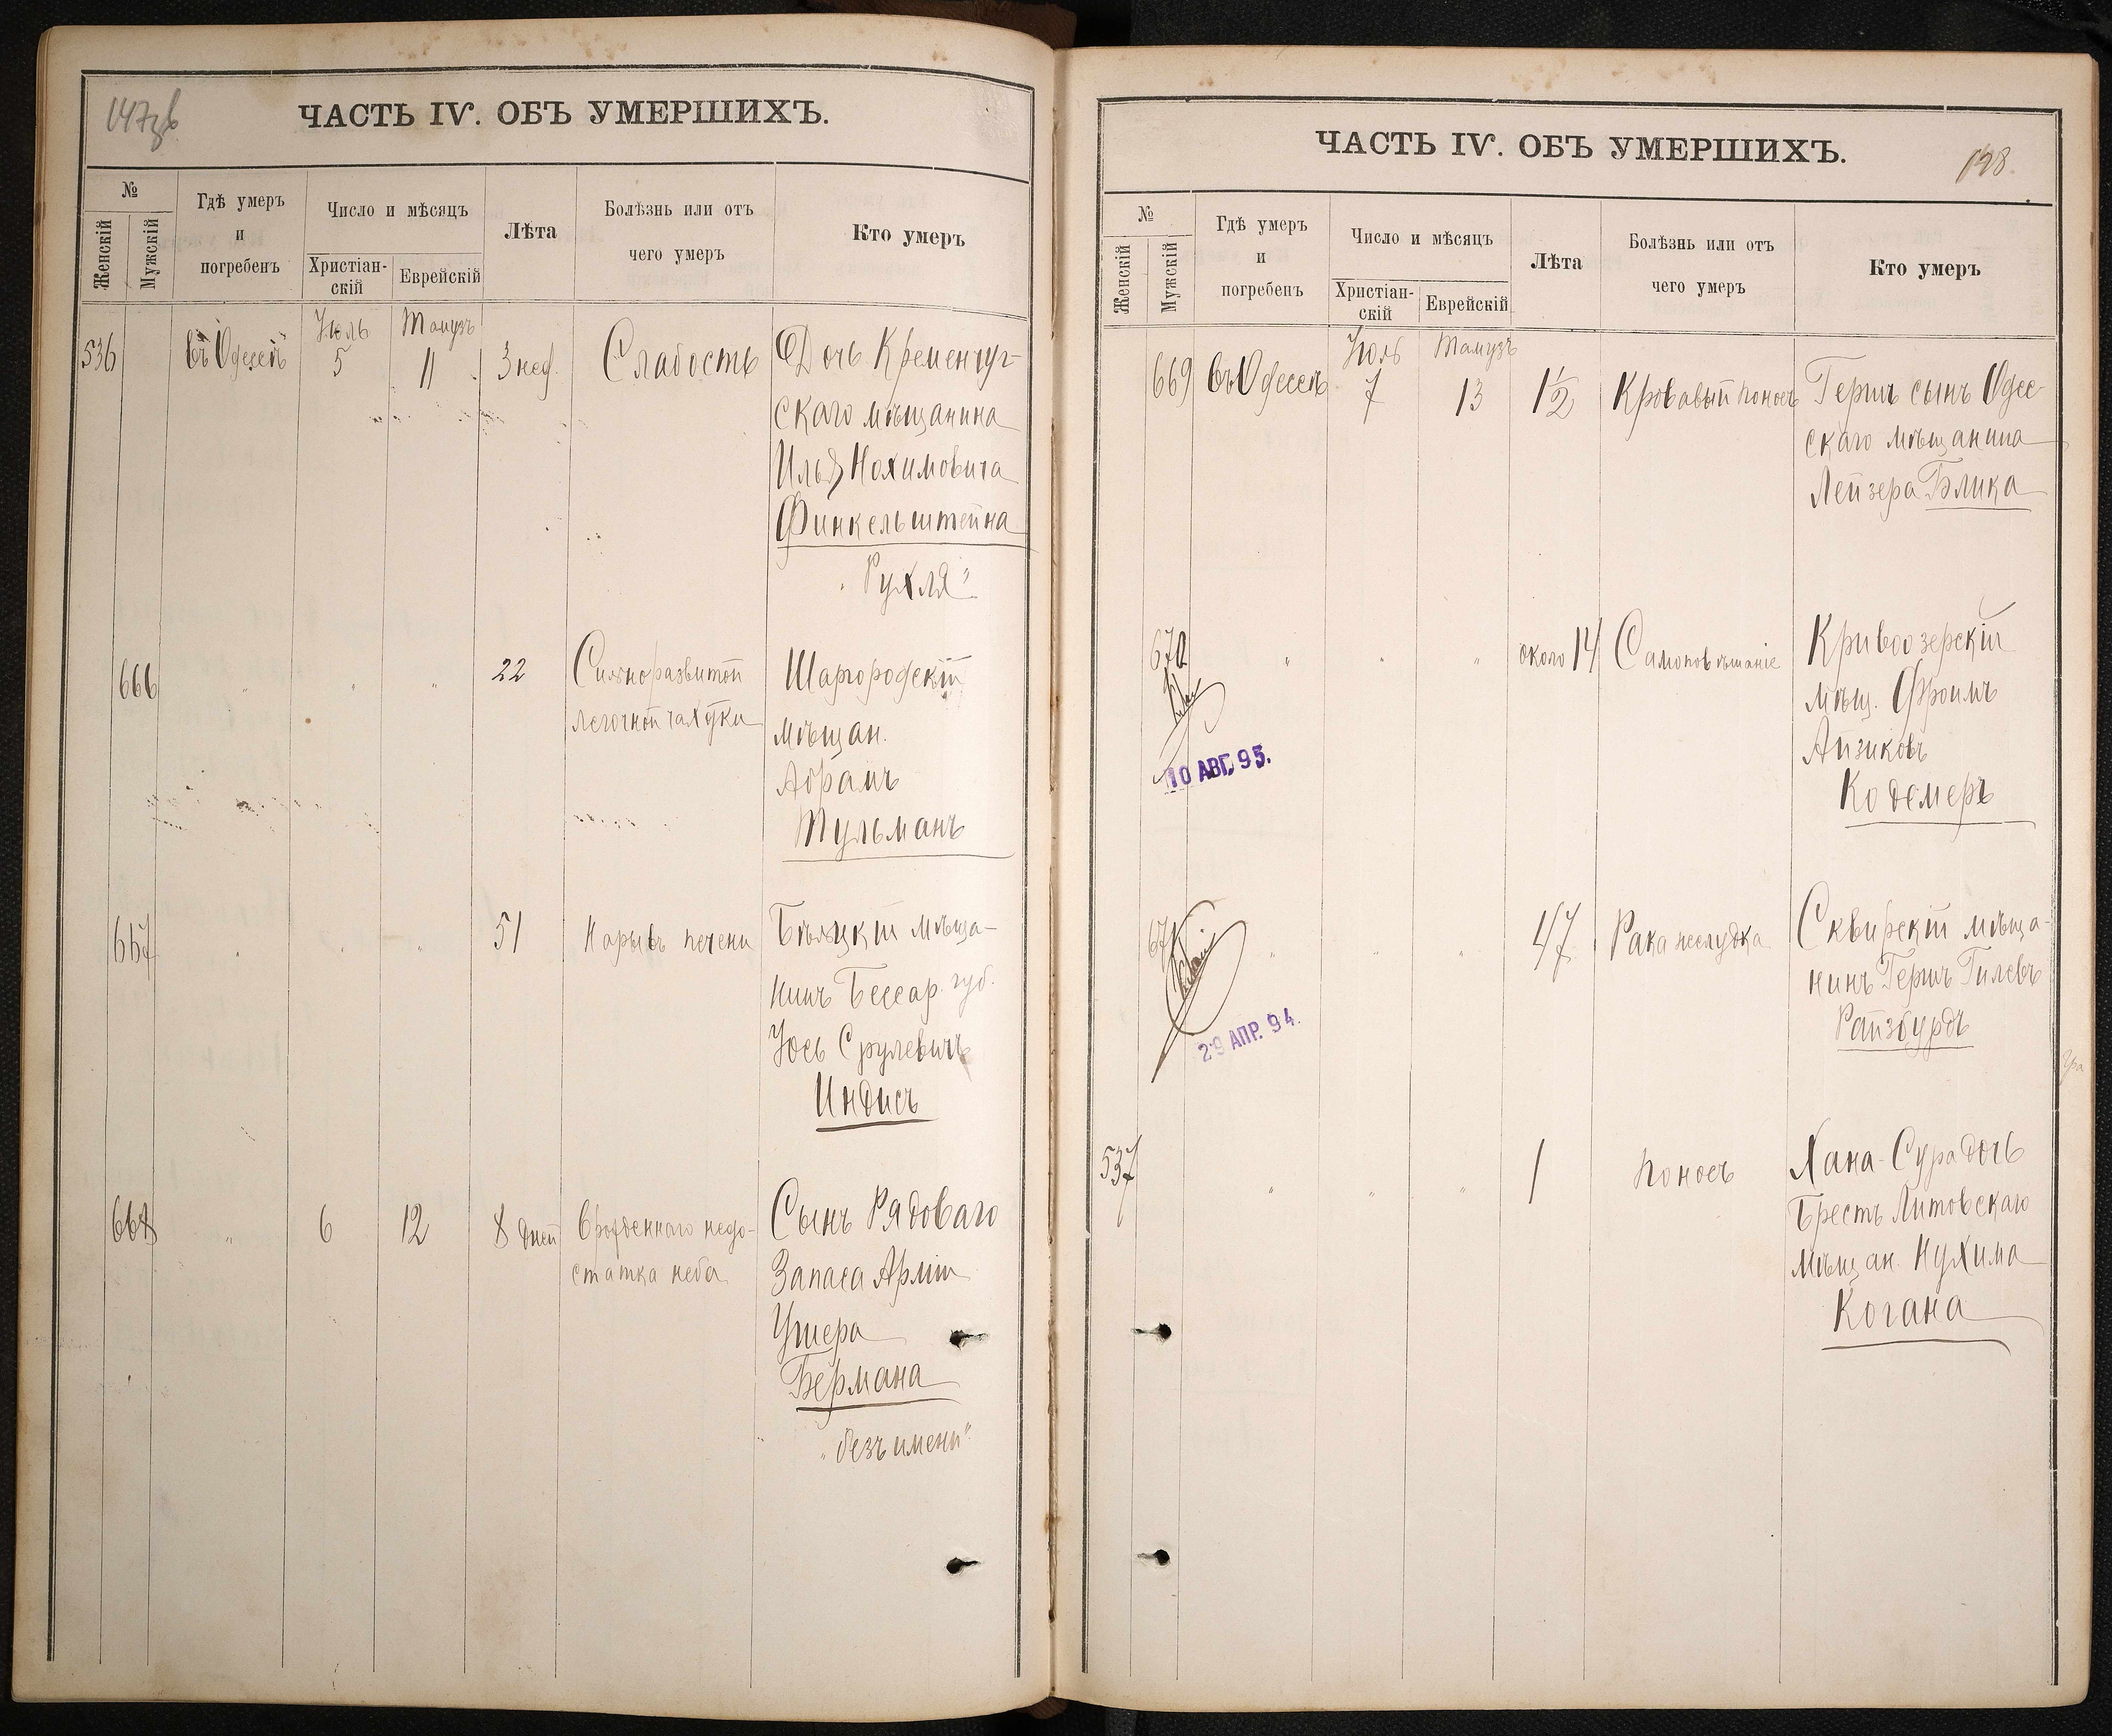 147 об
ЧАСТЬ IV. ОБЪ УМЕРШИХЪ.
№
Женскій
Мужскій
Гдѣ умеръ
и
погребенъ
Число и мѣсяцъ
Христіан-
скій
Еврейскій
Лѣта
Болѣзнь или отъ
чего умеръ
Кто умеръ
Іюль Тамузъ
536 въ Одессѣ 5 11 3 нед. Слабость Дочь Кременчуг-
скаго мѣщанина
Ильи Нохимовича
Финкельштейна
"Рухля"
666 " " " 22 Сильноразвитой Шаргородскій
легочной чахотки мѣщан.
Абрамъ
Тульманъ
667 " " " 51 Нарывъ печени Бѣлецкій мѣща-
нинъ Бессар. губ.
Іось Срулевичъ
Индисъ
668 " 6 12 8 дней Врожденнаго недо- Сынъ Рядоваго
статка неба Запаса Арміи
Ушера
Бермана
"безъ имени"
148.
ЧАСТЬ IV. ОБЪ УМЕРШИХЪ.
№
Женскій
Мужскій
Гдѣ умеръ
и
погребенъ
Число и мѣсяцъ
Христіан-
скій
Еврейскій
Лѣта
Болѣзнь или отъ
чего умеръ
Кто умеръ
Іюль Тамузъ
669 въ Одессѣ 7 13 1½ Кровавый поносъ Гершъ сынъ Одес-
скаго мѣщанина
Лейзера Блика
670 " " " около 14 Самоповѣшаніе Кривоозерскій
мѣщ. Фроимъ
Айзиковъ
Кодемеръ
10 АВГ. 95.
671 " " " 47 Рака желудка Сквирскій мѣща-
нинъ Гершъ Гилевъ
Райзбурдъ
29 АПР. 94.
537 " " " 1 Поносъ Хана-Сура дочь
Брестъ Литовскаго
мѣщан. Нухима
Когана